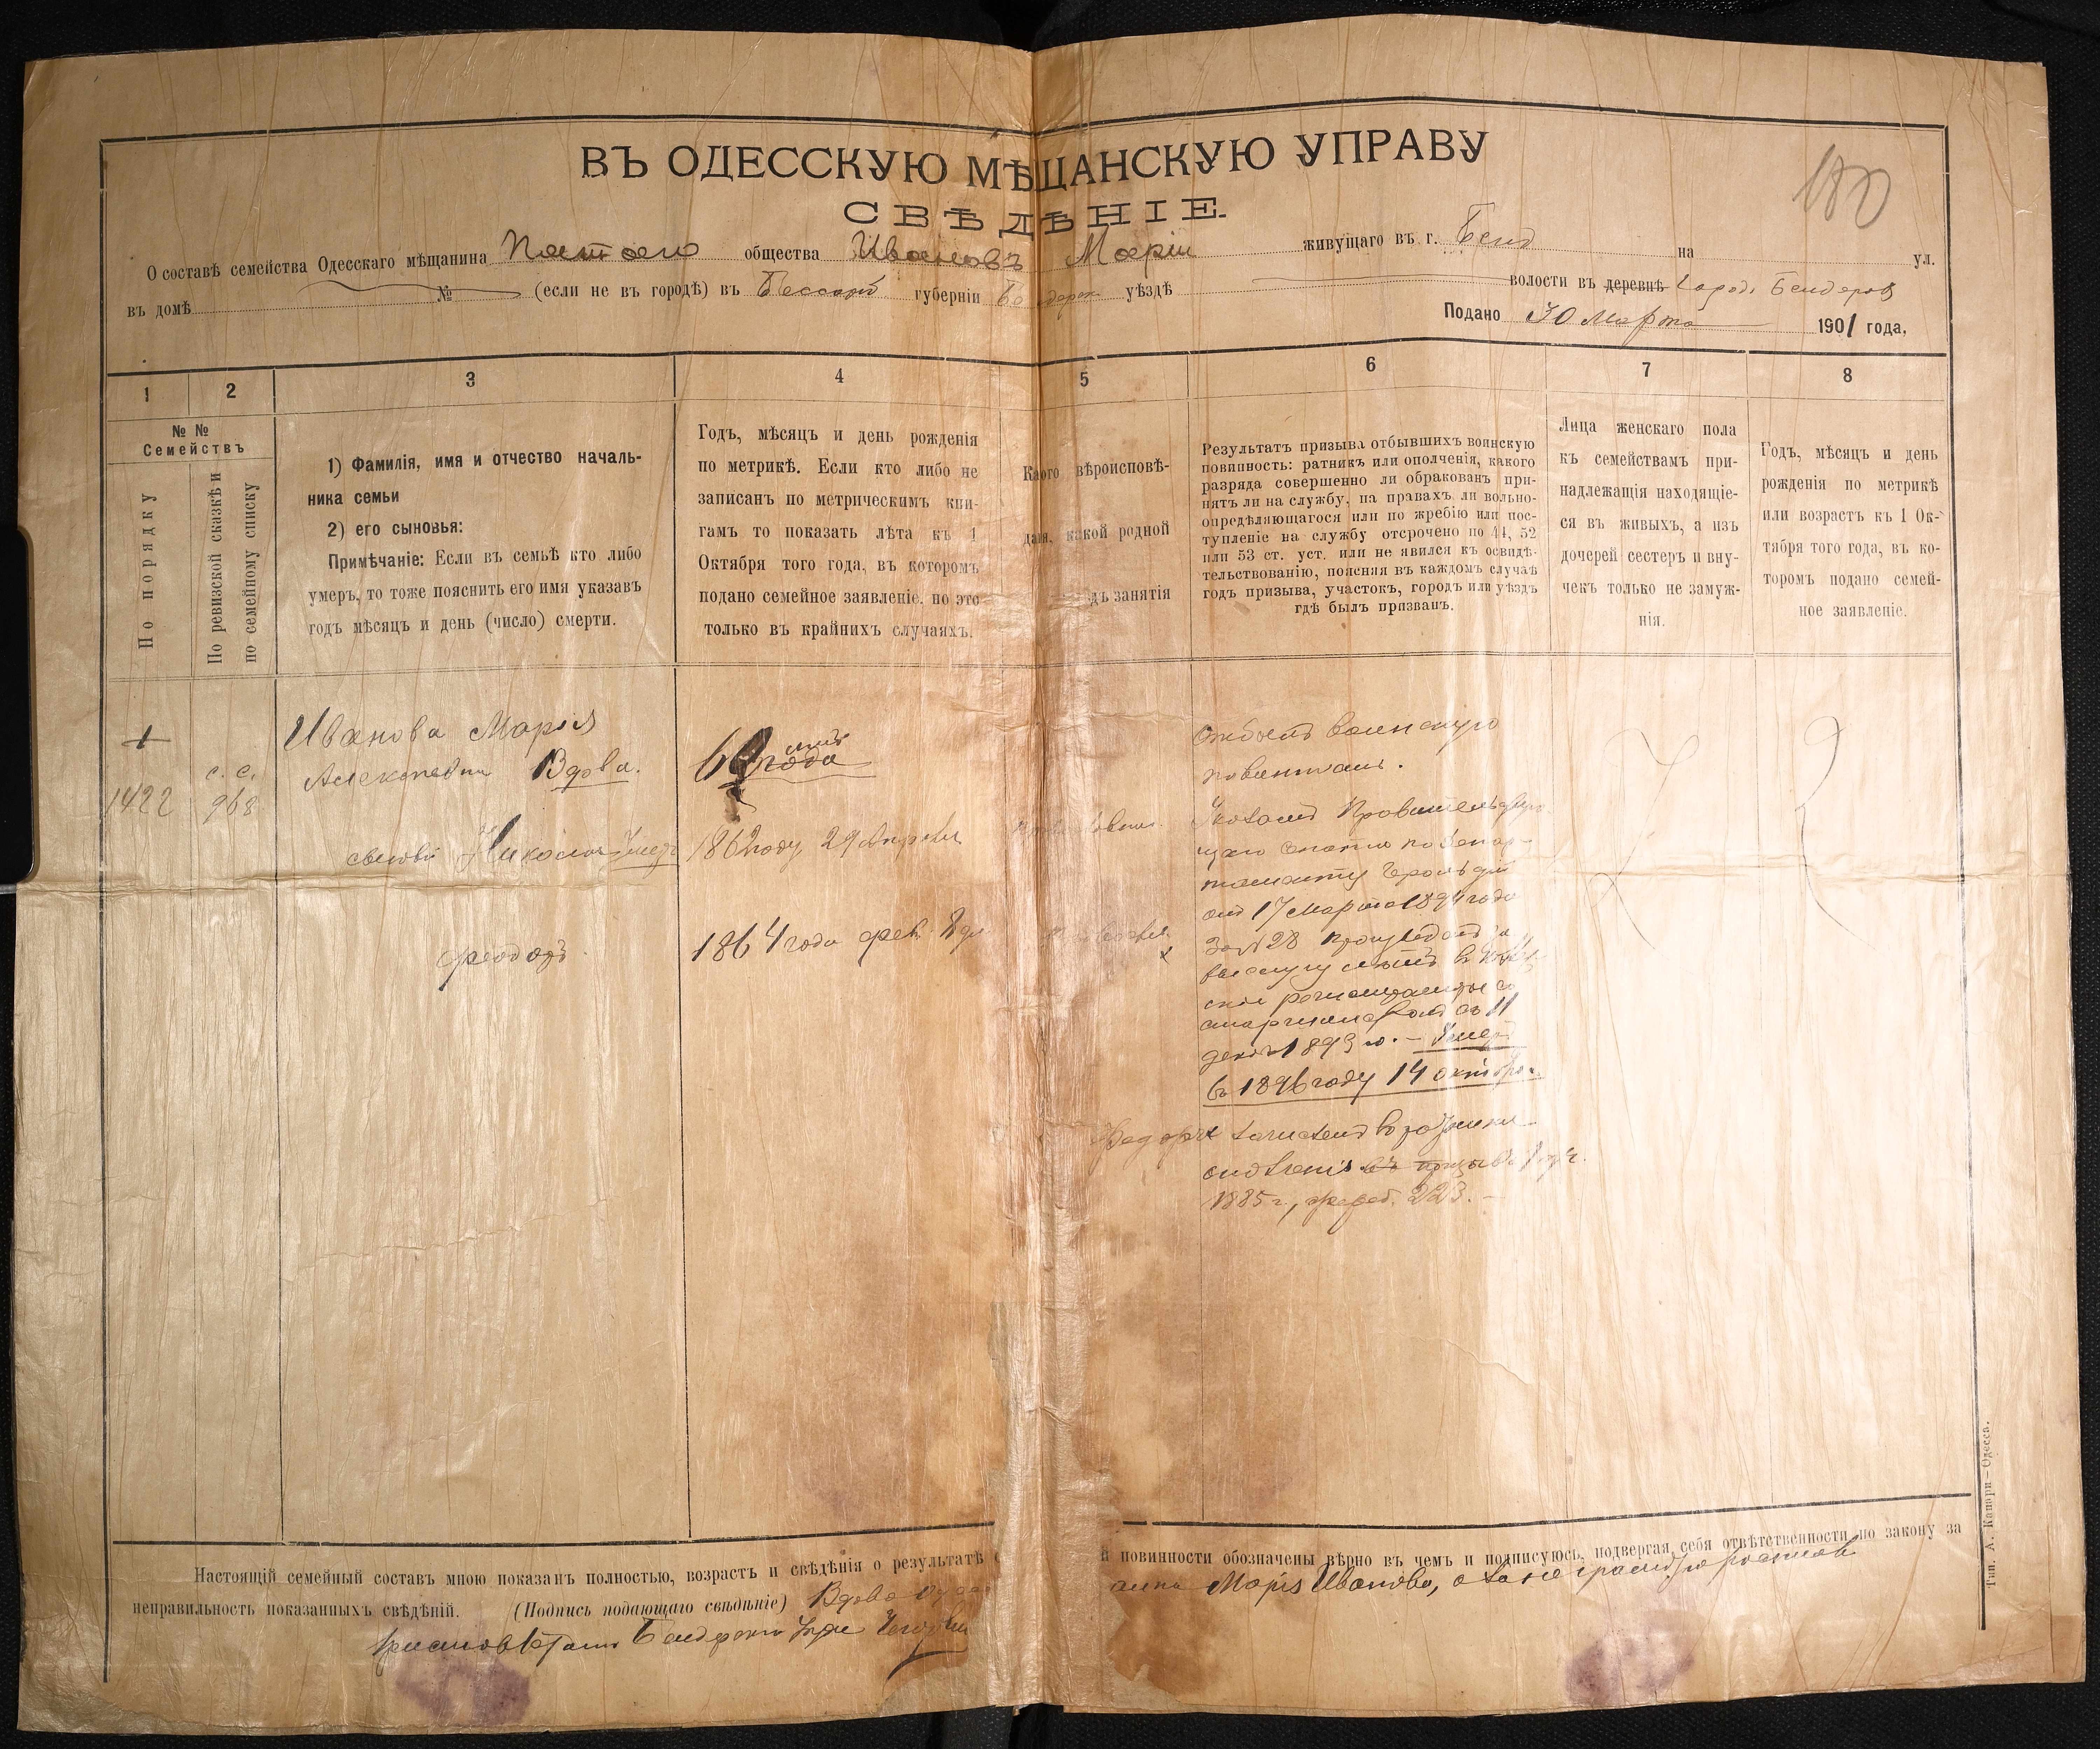 ВЪ ОДЕССКУЮ МѢЩАНСКУЮ УПРАВУ
СВѢДѢНІЕ.
180
О составѣ семейства Одесскаго мѣщанина общества Ивановъ Маріи живущаго въ г. Бенд на ул.
въ домѣ № (если не въ городѣ) въ Бессараб губерніи уѣздѣ волости въ деревнѣ город. Бендеров
Подано 30 Марта 1901 года,
1 2 3 4 5 6 7 8
№ №
Семействъ
По порядку
По ревизской сказкѣ и
по семейному списку
1) Фамилія, имя и отчество началь-
ника семьи
2) его сыновья:
Примѣчаніе: Если въ семьѣ кто либо
умеръ, то тоже пояснить его имя указавъ
годъ мѣсяцъ и день (число) смерти.
Годъ, мѣсяцъ и день рожденія
по метрикѣ. Если кто либо не
записанъ по метрическимъ кни-
гамъ то показать лѣта къ 1
Октября того года, въ которомъ
подано семейное заявленіе. но это
только въ крайнихъ случаяхъ.
Каого вѣроисповѣ-
данія, какой родной
дъ занятія
Результатъ призыва отбывшихъ воинскую
повинность: ратникъ или ополченія, какого
разряда совершенно ли обракованъ при-
нятъ ли на службу, на правахъ ли вольно-
опредѣляющагося или по жребію или пос-
тупленіе на службу отсрочено по 44, 52
или 53 ст. уст. или не явился къ освидѣ-
тельствованію, поясняя въ каждомъ случаѣ
годъ призыва, участокъ, городъ или уѣздъ
гдѣ былъ призванъ.
Лица женскаго пола
къ семействамъ при-
надлежащія находящіе-
ся въ живыхъ, а изъ
дочерей сестеръ и вну-
чекъ только не замуж-
нія.
Годъ, мѣсяцъ и день
рожденія по метрикѣ
или возрастъ къ 1 Ок-
тября того года, въ ко-
торомъ подано семей-
ное заявленіе.
1
1422
с. с.
968
Иванова Марія
Алексѣевна Вдова.
лѣтъ
года
сыновья Николай Умеръ
1862 году 29 Апреля
Феодоръ
1864 года фев. 8 дн
Отбылъ воинскую
повинность.
Указомъ Правительствую
щаго Сената по Депар-
таменту Герольдіи
отъ 17 Марта 1894 года
за № 28 произведенъ за
выслугу лѣтъ въ
регистраторы со
старшинствомъ съ 11
декаб 1893 го. - Умеръ
въ 1896 году 14 октября
Федоръ зачисленъ въ ратники
ополченія въ призывъ
1885 г., жереб. 223. -
Настоящій семейный составъ мною показанъ полностью, возрастъ и свѣдѣнія о результатѣ й повинности обозначены вѣрно въ чемъ и подписуюсь, подвергая себя отвѣтственности по закону за
неправильность показанныхъ свѣдѣній. (Подпись подающаго свѣдѣніе) Вдова Марія Иванова, а за неграмотную
Бендерскій
Тип. А. Капари – Одесса.